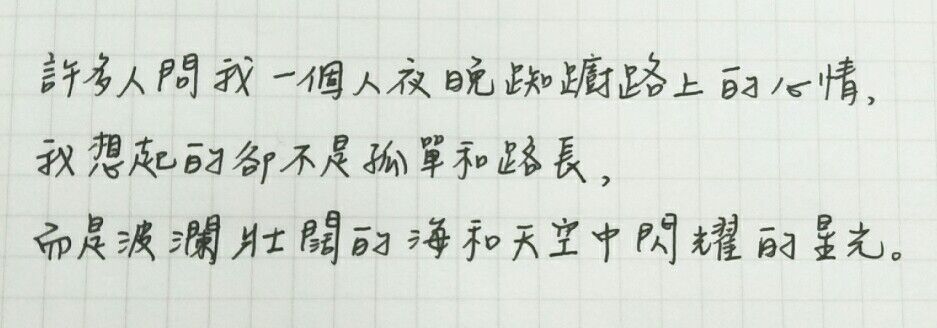 許多人問我一個人夜晚踟躕路上的心情，
我想起的卻不是孤單和路長，
而是波瀾壯闊的海和天空中閃耀的星光。